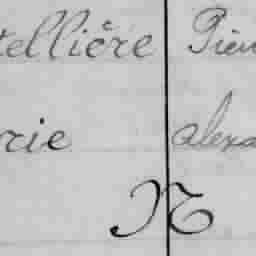 tellière Pier
rie alexa
N